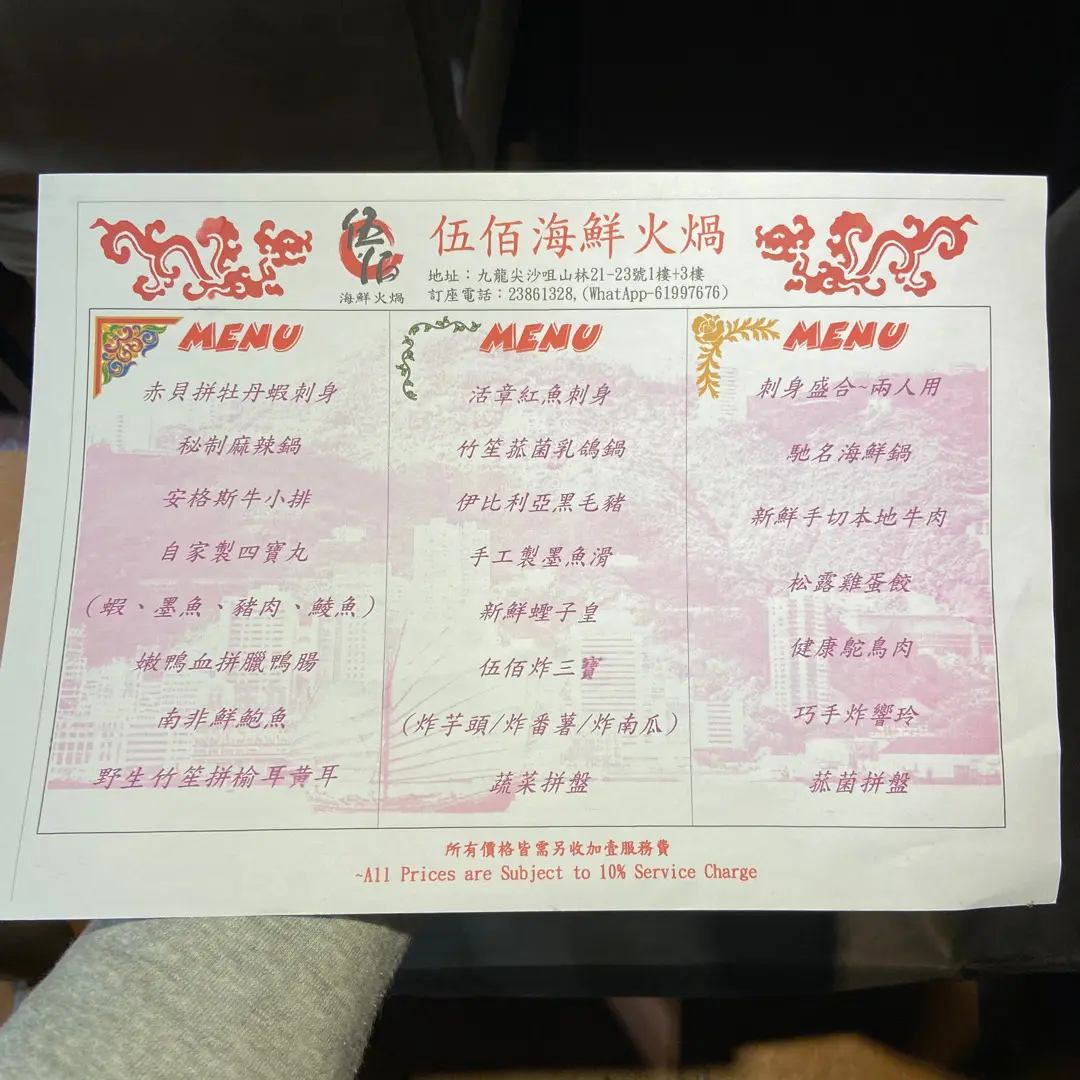 伍佰
海鮮火煱
伍佰海鮮火煱
地址：九龍尖沙咀山林21-23號1樓+3樓
訂座電話：23861328,(WhatApp-61997676)
MENU
赤貝拼牡丹蝦刺身
秘制麻辣鍋
安格斯牛小排
自家製四寶丸
（蝦、墨魚、豬肉、鯪魚）
嫩鴨血拼臘鴨腸
南非鮮鮑魚
野生竹笙拼榆耳黃耳
MENU
活章紅魚刺身
竹笙菰菌乳鴿鍋
伊比利亞黑毛豬
手工製墨魚滑
新鮮蟶子皇
伍佰炸三寶
（炸芋頭/炸番薯/炸南瓜）
蔬菜拼盤
MENU
刺身盛合~兩人用
馳名海鮮鍋
新鮮手切本地牛肉
松露雞蛋餃
健康鴕鳥肉
巧手炸響玲
菰菌拼盤
所有價格皆需另收加壹服務費
~All Prices are Subject to 10% Service Charge